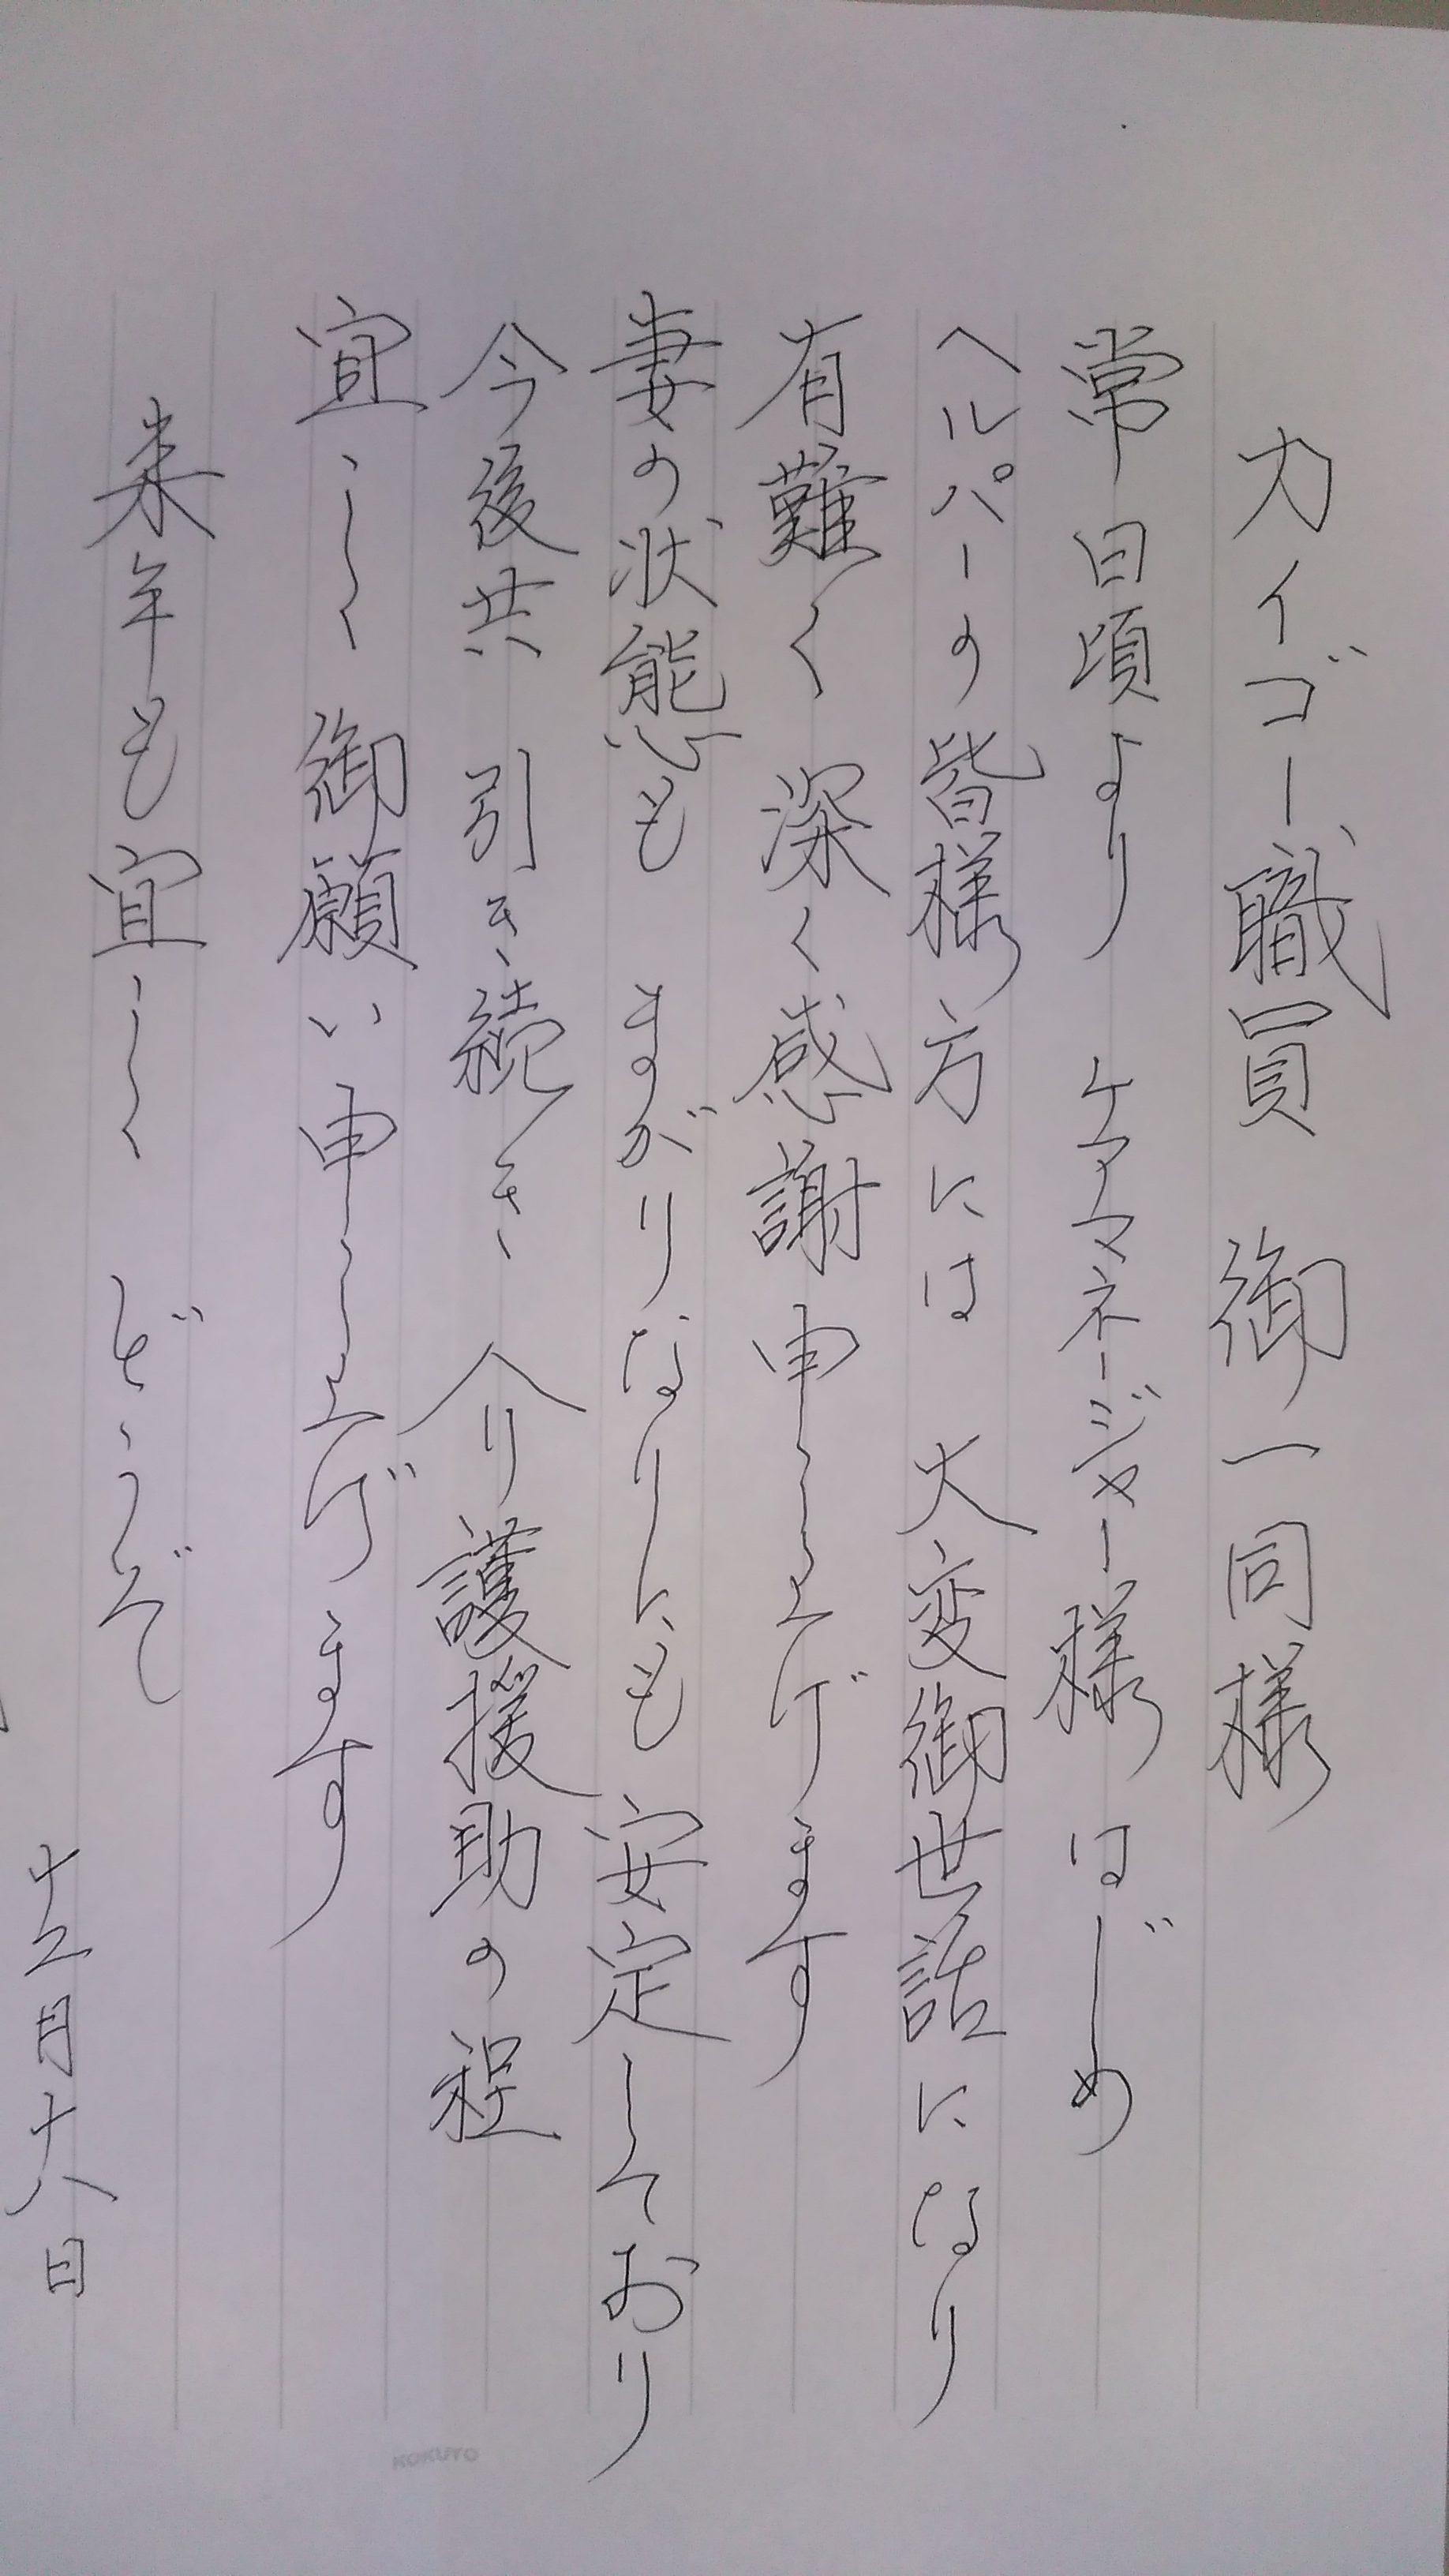 カイゴー職員 御一同様
常日頃より ケアマネージャー様はじめ
ヘルパーの皆様方には 大変御世話になり
有難く 深く感謝申し上げます
妻の状態も まがりなりにも安定しており
今後共 引き続き 介護援助の程
宜しく 御願い申し上げます
来年も宜しく どうぞ
十二月十八日
KOKUYO